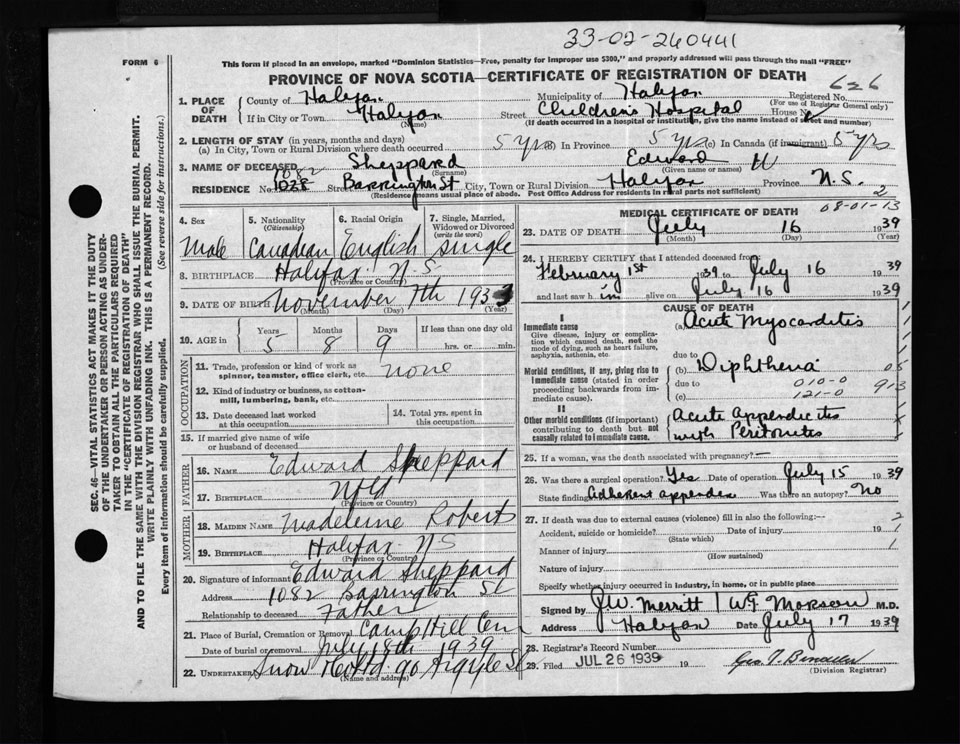 33-02-260441
FORM 6
This form if placed in an envelope, marked "Dominion Statistics—Free, penalty for improper use $300," and properly addressed will pass through the mail "FREE"
PROVINCE OF NOVA SCOTIA—CERTIFICATE OF REGISTRATION OF DEATH
626
1. PLACE OF DEATH { County of Halifax Municipality of Halifax Registered No.
(For use of Registrar General only)
If in City or Town Halifax Street Children's Hospital House No.
(Name) (If death occurred in a hospital or institution, give the name instead of street and number)
2. LENGTH OF STAY (in years, months and days)
(a) In City, Town or Rural Division where death occurred 5 yrs (b) In Province 5 yrs (c) In Canada (if immigrant) 5 yrs
3. NAME OF DECEASED Sheppard Edward W
(Surname) (Given name or names)
RESIDENCE No. 1028 1082 Barrington St City, Town or Rural Division Halifax Province N.S.
(Residence means usual place of abode. Post Office Address for residents in rural parts not sufficient) 2
4. Sex Male
5. Nationality (Citizenship) Canadian
6. Racial Origin English
7. Single, Married, Widowed or Divorced (write the word) single
8. BIRTHPLACE Halifax N.S
(Province or Country)
9. DATE OF BIRTH November 7th 1933
(Month) (Day) (Year)
10. AGE in Years 5 Months 8 Days 9 If less than one day old hrs. or min.
OCCUPATION
11. Trade, profession or kind of work as spinner, teamster, office clerk, etc. none
12. Kind of industry or business, as cotton-mill, lumbering, bank, etc.
13. Date deceased last worked at this occupation
14. Total yrs. spent in this occupation
15. If married give name of wife or husband of deceased
FATHER
16. NAME Edward Sheppard
17. BIRTHPLACE Nfld
(Province or Country)
MOTHER
18. MAIDEN NAME Madeleine Roberts
19. BIRTHPLACE Halifax N S
(Province or Country)
20. Signature of informant Edward Sheppard
Address 1082 Barrington St
Relationship to deceased Father
21. Place of Burial, Cremation or Removal Camp Hill Cem
Date of burial or removal July 18th 1939
22. UNDERTAKER Snow Co Ltd 90 Argyle St
(Name and address)
MEDICAL CERTIFICATE OF DEATH
08-01-13
23. DATE OF DEATH July 16 1939
(Month) (Day) (Year)
24. I HEREBY CERTIFY that I attended deceased from:
February 1st 1939 to July 16 1939
and last saw him alive on July 16 1939
CAUSE OF DEATH
I
Immediate cause (a) Acute Myocarditis
Give disease, injury or complication which caused death, not the mode of dying, such as heart failure, asphyxia, asthenia, etc.
due to
Morbid conditions, if any, giving rise to immediate cause (stated in order proceeding backwards from immediate cause). (b) Diphtheria
due to 010-0
(c) 121-0
913
II
Other morbid conditions (if important) contributing to death but not causally related to immediate cause. Acute Appendicitis with Peritonitis
25. If a woman, was the death associated with pregnancy?
26. Was there a surgical operation? Yes Date of operation July 15 1939
State findings Adherent appendix Was there an autopsy? No
27. If death was due to external causes (violence) fill in also the following:— 2
Accident, suicide or homicide? Date of injury 19 1
(State which)
Manner of injury 1
(How sustained)
Nature of injury
Specify whether injury occurred in industry, in home, or in public place
Signed by J.W. Merritt / W.F. M.D.
Address Halifax Date July 17 1939
28. Registrar's Record Number
29. Filed JUL 26 1939 19 Geo. T.
(Division Registrar)
SEC. 46—VITAL STATISTICS ACT MAKES IT THE DUTY OF THE UNDERTAKER OR PERSON ACTING AS UNDERTAKER TO OBTAIN ALL THE PARTICULARS REQUIRED IN THE "CERTIFICATE OF REGISTRATION OF DEATH" AND TO FILE THE SAME WITH THE DIVISION REGISTRAR WHO SHALL ISSUE THE BURIAL PERMIT.
WRITE PLAINLY WITH UNFADING INK. THIS IS A PERMANENT RECORD.
Every item of information should be carefully supplied. (See reverse side for instructions.)